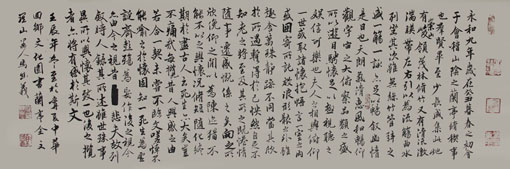 永和九年歲在癸丑暮春之初會
于會稽山陰之蘭亭脩稧事
也羣賢畢至少長咸集此地
有崇山峻領茂林脩竹又有清流激
湍暎帶左右引以為流觴曲水
列坐其次雖無絲竹管弦之
盛一觴一詠亦足以暢敘幽情
是日也天朗氣清惠風和暢仰
觀宇宙之大俯察品類之盛
所以遊目騁懷足以極視聽之
娛信可樂也夫人之相與俯仰
一世或取諸懷抱悟言一室之內
或因寄所託放浪形骸之外雖
趣舍萬殊靜躁不同當其欣
於所遇蹔得於己怏然自足不
知老之將至及其所之既惓情
隨事遷感慨係之矣向之所
欣俛仰之閒以為陳迹猶不
能不以之興懷況脩短隨化終
期於盡古人云死生亦大矣豈
不痛哉每攬昔人興感之由
若合一契未嘗不臨文嗟悼不
能喻之於懷固知一死生為虛
誕齊彭殤為妄作後之視今
亦由今之視昔悲夫故列
敘時人錄其所述雖世殊事
異所以興懷其致一也後之攬
者亦將有感於斯文
壬辰年冬中華
回鄉文化園書蘭亭全文
山人馬義